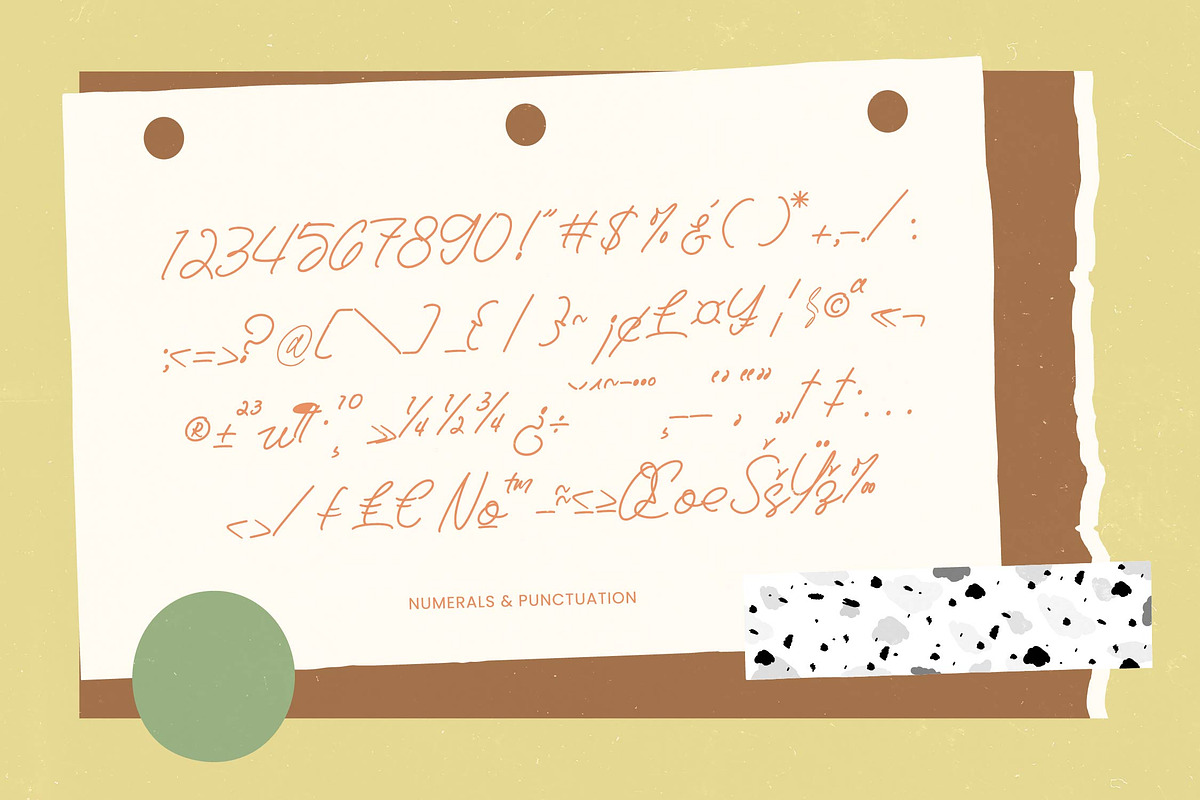 1234567890!"#$%&'()*+,-./:
;<=>?@[\]_{|}~¡¢£¤¥¦§©ª«¬
®±²³µ¶·¸¹º»¼½¾¿÷ˇˆ˜¯°°°‘’“”‚–—‚„†‡·...
<>/₣£€№™−≈≤≥ŒœeŠšŸž‰
NUMERALS & PUNCTUATION